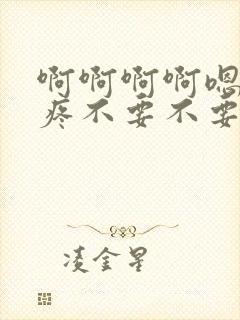 啊啊啊啊嗯
疼不要不要
凌金星